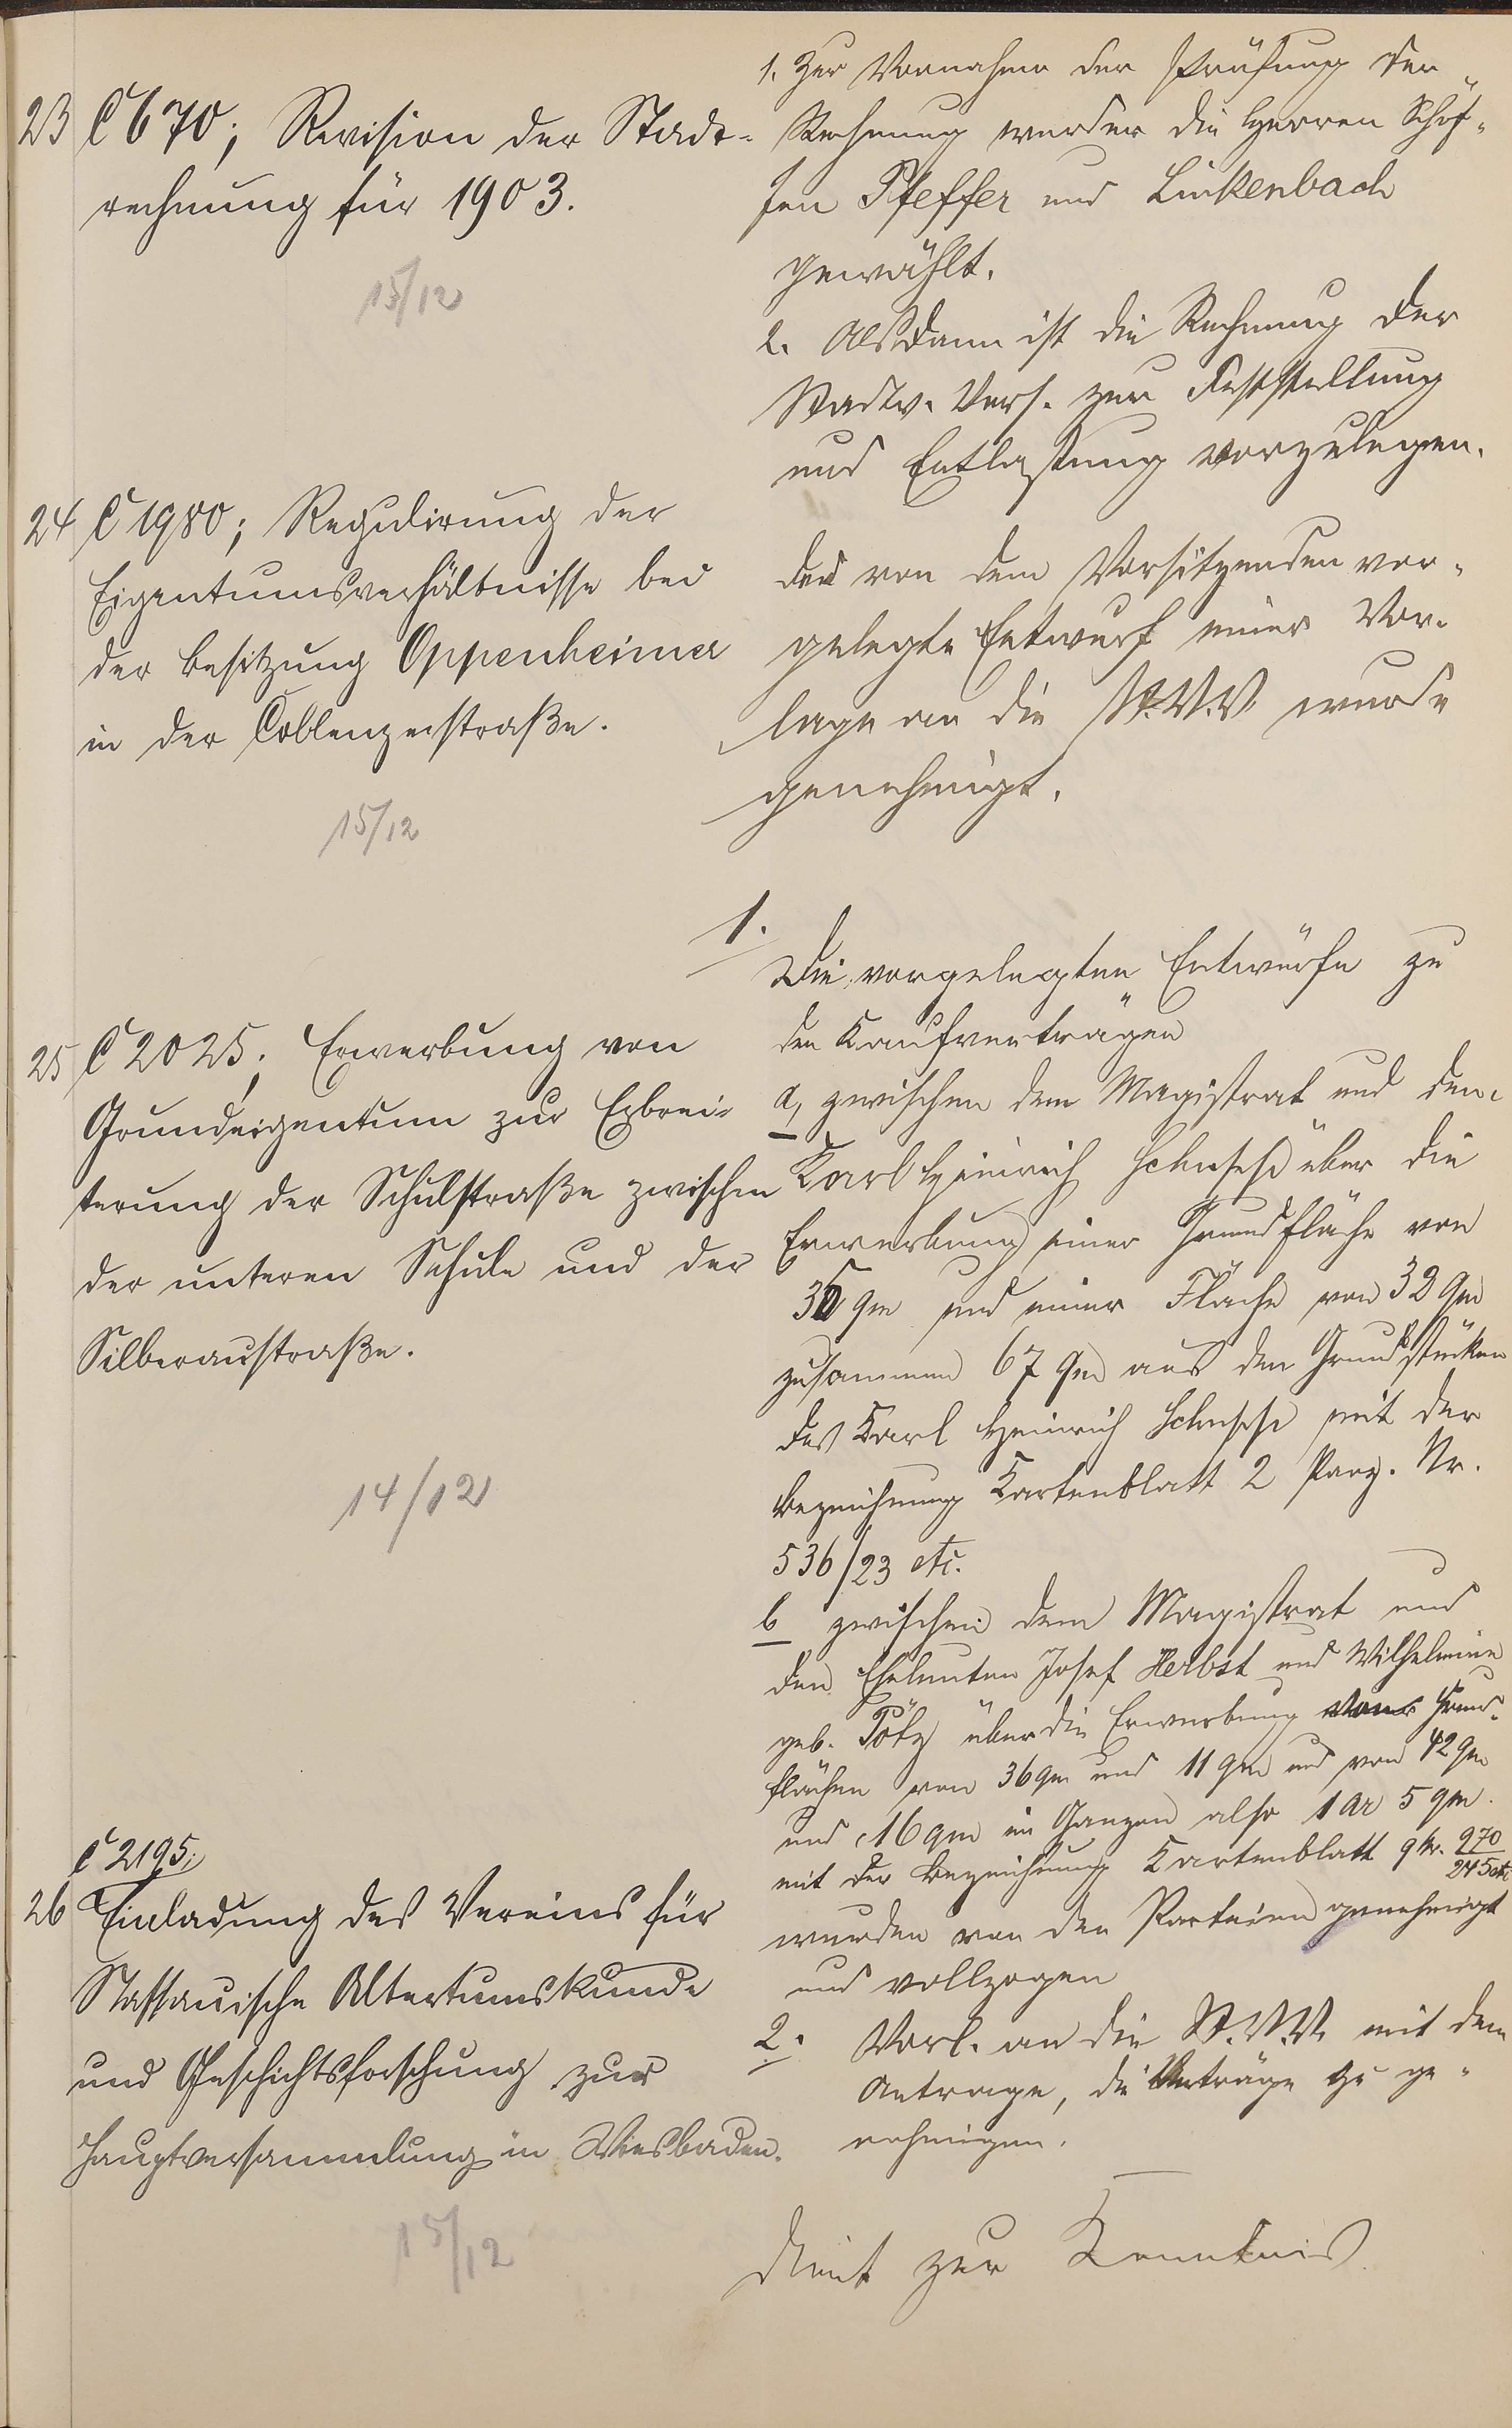 23 C 670; Revision der Stadt-
rechnung für 1903.
15/12
1. Zur Vornahme der Prüfung der
Rechnung werden die Herren Schöf-
fen Pfeffer und Linkenbach
gewählt.
2. Alsdann ist die Rechnung der
Stadtv. Vers. zur Feststellung
und Entlastung vorzulegen.
24 C 1980; Regulirung der
Eigentumsverhältnisse bei
der Besitzung Oppenheimer
in der Coblenzerstraße.
15/12
Der von dem Vorsitzenden vor-
gelegte Entwurf einer Vor-
lage an die St.V.V. wurde
genehmigt.
25 C 2025; Erwerbung von
Grundeigentum zur Erbrei-
terung der Schulstraße zwischen
der unteren Schule und der
Silberaustraße.
14/12
1.
Die vorgelegten Entwürfe zu
den Kaufverträgen
a, zwischen dem Magistrat und dem
Karl Heinrich über die
Erwerbung einer Grundfläche von
35 qm und einer Fläche von 32 qm
zusammen 67 qm aus den Grundstücken
des Karl Heinrich mit der
Bezeichnung Kartenblatt 2 Parz. Nr.
536/23 etc.
b zwischen dem Magistrat und
den Eheleuten Josef Herbst und Wilhelmine
geb. Pötz über die Erwerbung von Grund-
flächen von 36 qm und 11 qm und von 42 qm
und 16 qm im Ganzen also 1 ar 5 qm.
mit der Bezeichnung Kartenblatt 9 Nr. 270/245 etc
wurden von den Parteien genehmigt
und vollzogen
2. Vorl. an die St.V.V. mit dem
Antrage, die Verträge zu ge-
nehmigen.
C 2195;
26 Einladung des Vereins für
Nassauische Altertumskunde
und Geschichtsforschung zur
Hauptversammlung in Wiesbaden.
15/12
dient zur Kenntnis